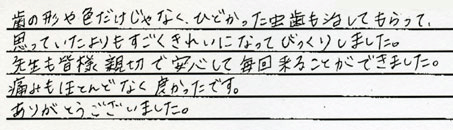 歯の形や色だけじゃなく、ひどかった虫歯も治してもらって、
思っていたよりもすごくきれいになってびっくりしました。
先生も皆様親切で安心して毎回来ることができました。
痛みもほとんどなく良かったです。
ありがとうございました。